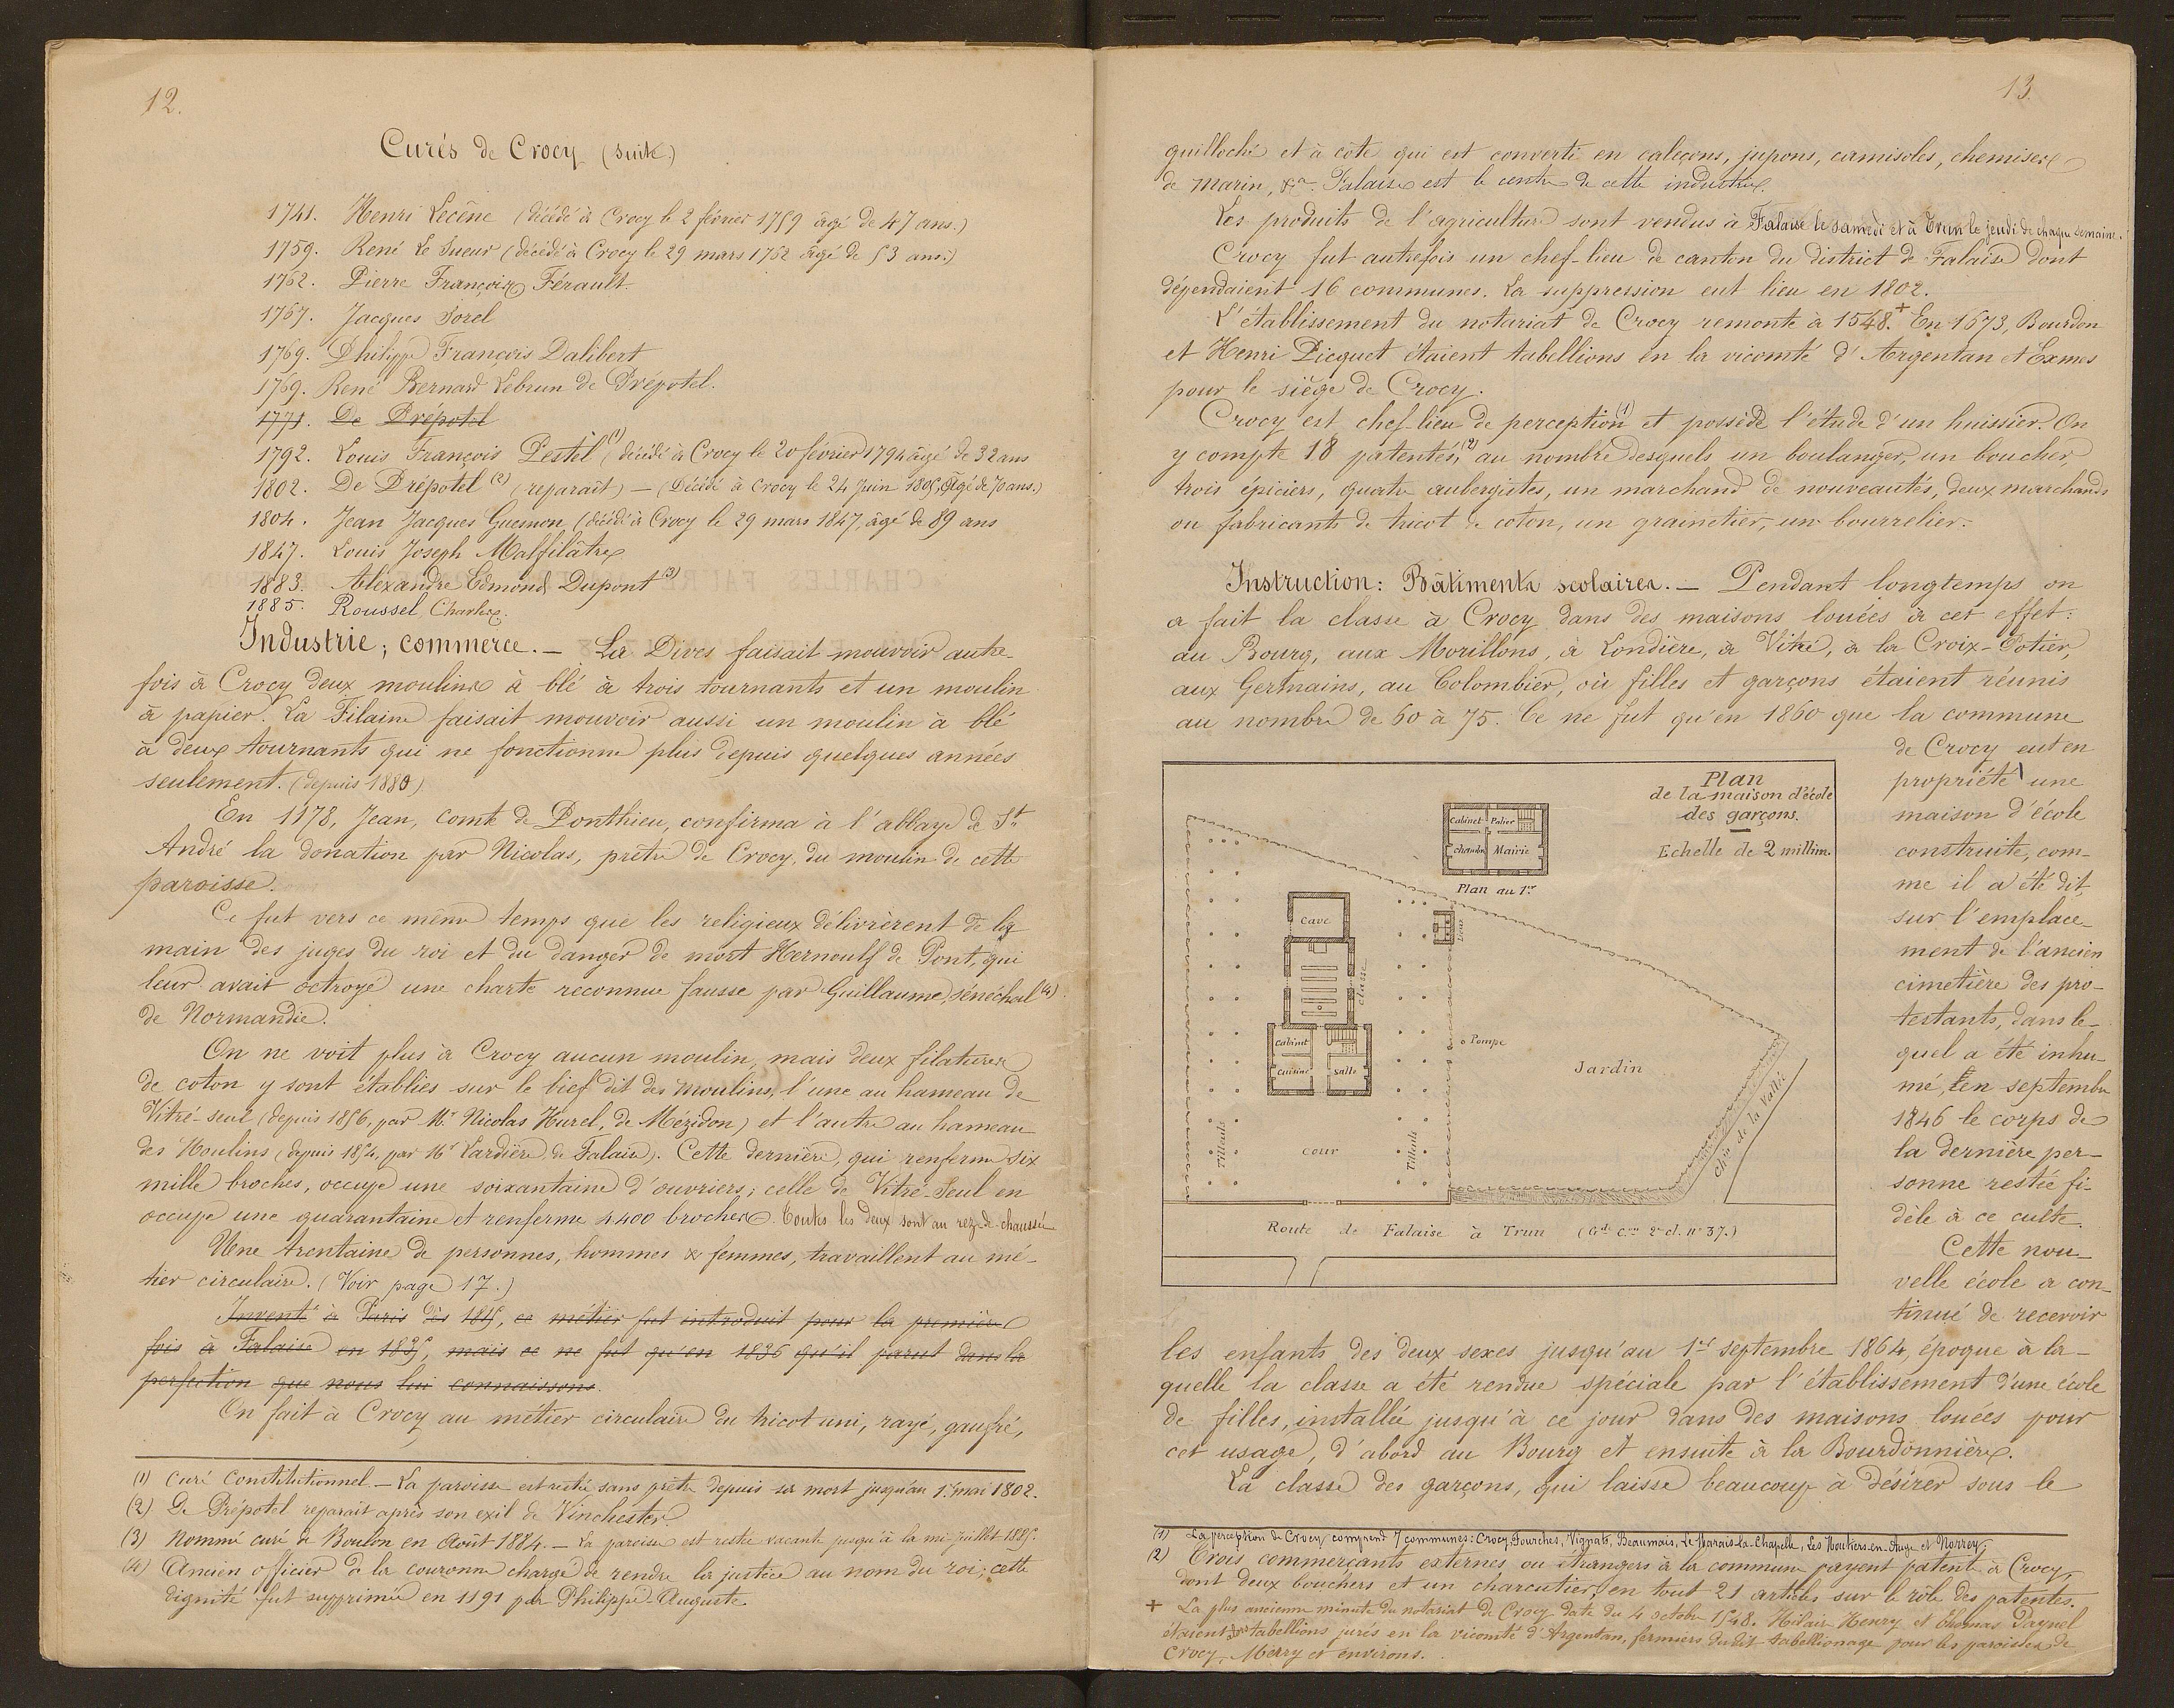 12.
Curés de Crocy (suite.)
1741. Henri Lecêne (décédé à Crocy le 2 février 1759 âgé de 47 ans.)
1759. René Le Sueur (décédé à Crocy le 29 mars 1762 âgé de 53 ans.)
1762. Pierre François Férault.
1767. Jacques Sorel
1769. Philippe François Dalibert
1769. René Bernard Lebrun de Prépotel.
1771. De Prépotel
1792. Louis François Pestel (1) (décédé à Crocy le 20 février 1794 âgé de 32 ans
1802. De Prépotel (2) (reparaît) — (Décédé à Crocy le 24 Juin 1805, âgé de 70 ans.)
1804. Jean Jacques Guesnon (décédé à Crocy le 29 mars 1847, âgé de 89 ans
1847. Louis Joseph Malfilâtre
1883. Alexandre Edmond Dupont (3)
1885. Roussel, Charles.
Industrie; commerce. — La Dives faisait mouvoir autre-
fois à Crocy deux moulins à blé à trois tournants et un moulin
à papier. La Filaine faisait mouvoir aussi un moulin à blé
à deux tournants qui ne fonctionne plus depuis quelques années
seulement. (depuis 1880)
En 1178, Jean, comte de Ponthieu, confirma à l'abbaye de St
André la donation par Nicolas, prêtre de Crocy, du moulin de cette
paroisse.
Ce fut vers ce même temps que les religieux délivrèrent de la
main des juges du roi et du danger de mort Hernoulf de Pont, qui
leur avait octroyé une charte reconnue fausse par Guillaume, sénéchal (4)
de Normandie.
On ne voit plus à Crocy aucun moulin, mais deux filatures
de coton y sont établies sur le bief dit des Moulins, l'une au hameau de
Vitré-seul (depuis 1856, par Mr Nicolas Hurel, de Mézidon) et l'autre au hameau
des Moulins (depuis 1854, par Mr Lardière de Falaise). Cette dernière, qui renferme six
mille broches, occupe une soixantaine d'ouvriers; celle de Vitré-Seul en
occupe une quarantaine et renferme 4400 broches. Toutes les deux sont au rez-de-chaussée
Une trentaine de personnes, hommes & femmes, travaillent au mé-
tier circulaire. (Voir page 17.)
Inventé à Paris dès 1815, ce métier fut introduit pour la première
fois à Falaise en 1835, mais ce ne fut qu'en 1836 qu'il parut dans la
perfection que nous lui connaissons.
On fait à Crocy au métier circulaire du tricot uni, rayé, gaufré,
(1) Curé Constitutionnel — La paroisse est restée sans prêtre depuis sa mort jusqu'au 1er mai 1802.
(2) De Prépotel reparait après son exil de Vinchester.
(3) Nommé curé de Boulon en Août 1884. — La paroisse est restée vacante jusqu'à la mi-Juillet 1885.
(4) Ancien officier de la couronne chargé de rendre la justice au nom du roi; cette
dignité fut supprimée en 1191 par Philippe-Auguste
13
guilloché et à côte qui est converti en caleçons, jupons, camisoles, chemises
de marin, &a. Falaise est le centre de cette industrie.
Les produits de l'agriculture sont vendus à Falaise le samedi et à Trun le jeudi de chaque semaine.
Crocy fut autrefois un chef-lieu de canton du district de Falaise dont
dépendaient 16 communes. La suppression eut lieu en 1802.
L'établissement du notariat de Crocy remonte à 1548.+ En 1673, Bourdon
et Henri Picquet étaient tabellions en la vicomté d'Argentan et Exmes
pour le siège de Crocy.
Crocy est chef-lieu de perception (1) et possède l'étude d'un huissier. On
y compte 18 patentés, (2) au nombre desquels un boulanger, un boucher,
trois épiciers, quatre aubergistes, un marchand de nouveautés, deux marchands
ou fabricants de tricot de coton, un grainetier, un bourrelier.
Instruction: Bâtiments scolaires. — Pendant longtemps on
a fait la classe à Crocy dans des maisons louées à cet effet:
au Bourg, aux Morillons, à Londière, à Vitré, à la Croix-Potier,
aux Germains, au Colombier, où filles et garçons étaient réunis
au nombre de 60 à 75. Ce ne fut qu'en 1860 que la commune
de Crocy eut en
propriété une
maison d'école
construite, com-
me il a été dit,
sur l'emplace-
ment de l'ancien
cimetière des pro-
testants, dans le-
quel a été inhu-
mé, en septembre
1846 le corps de
la dernière per-
sonne restée fi-
dèle à ce culte.
Cette nou-
velle école a con-
tinué de recevoir
Plan
de la maison d'école
des garçons.
Echelle de 2 millim.
Cabinet Palier
chambre Mairie
Plan au 1er
cave
Lieux
classe
cabinet
cuisine
salle
Pompe
Jardin
Tilleuls
cour
Tilleuls
Chin de la Vallée
Route de Falaise à Trun (Gd Con 2e cl. n° 37.)
les enfants des deux sexes jusqu'au 1er septembre 1864, époque à la-
quelle la classe a été rendue spéciale par l'établissement d'une école
de filles, installée jusqu'à ce jour dans des maisons louées pour
cet usage, d'abord au Bourg et ensuite à la Bourdonnière.
La classe des garçons, qui laisse beaucoup à désirer sous le
(1) La perception de Crocy comprend 7 communes: Crocy, Fourches, Vignats, Beaumais, Le Marais-la-Chapelle, Les Moutiers-en-Auge et Norrey.
(2) Trois commerçants externes ou étrangers à la commune payent patente à Crocy,
dont deux bouchers et un charcutier, en tout 21 articles sur le rôle des patentes.
+ La plus ancienne minute du notariat de Crocy date du 4 octobre 1548. Hilaire Henry et Thomas Paynel
étaient alors tabellions jurés en la vicomté d'Argentan, fermiers dudit tabellionage pour les paroisses de
Crocy, Merry et environs.